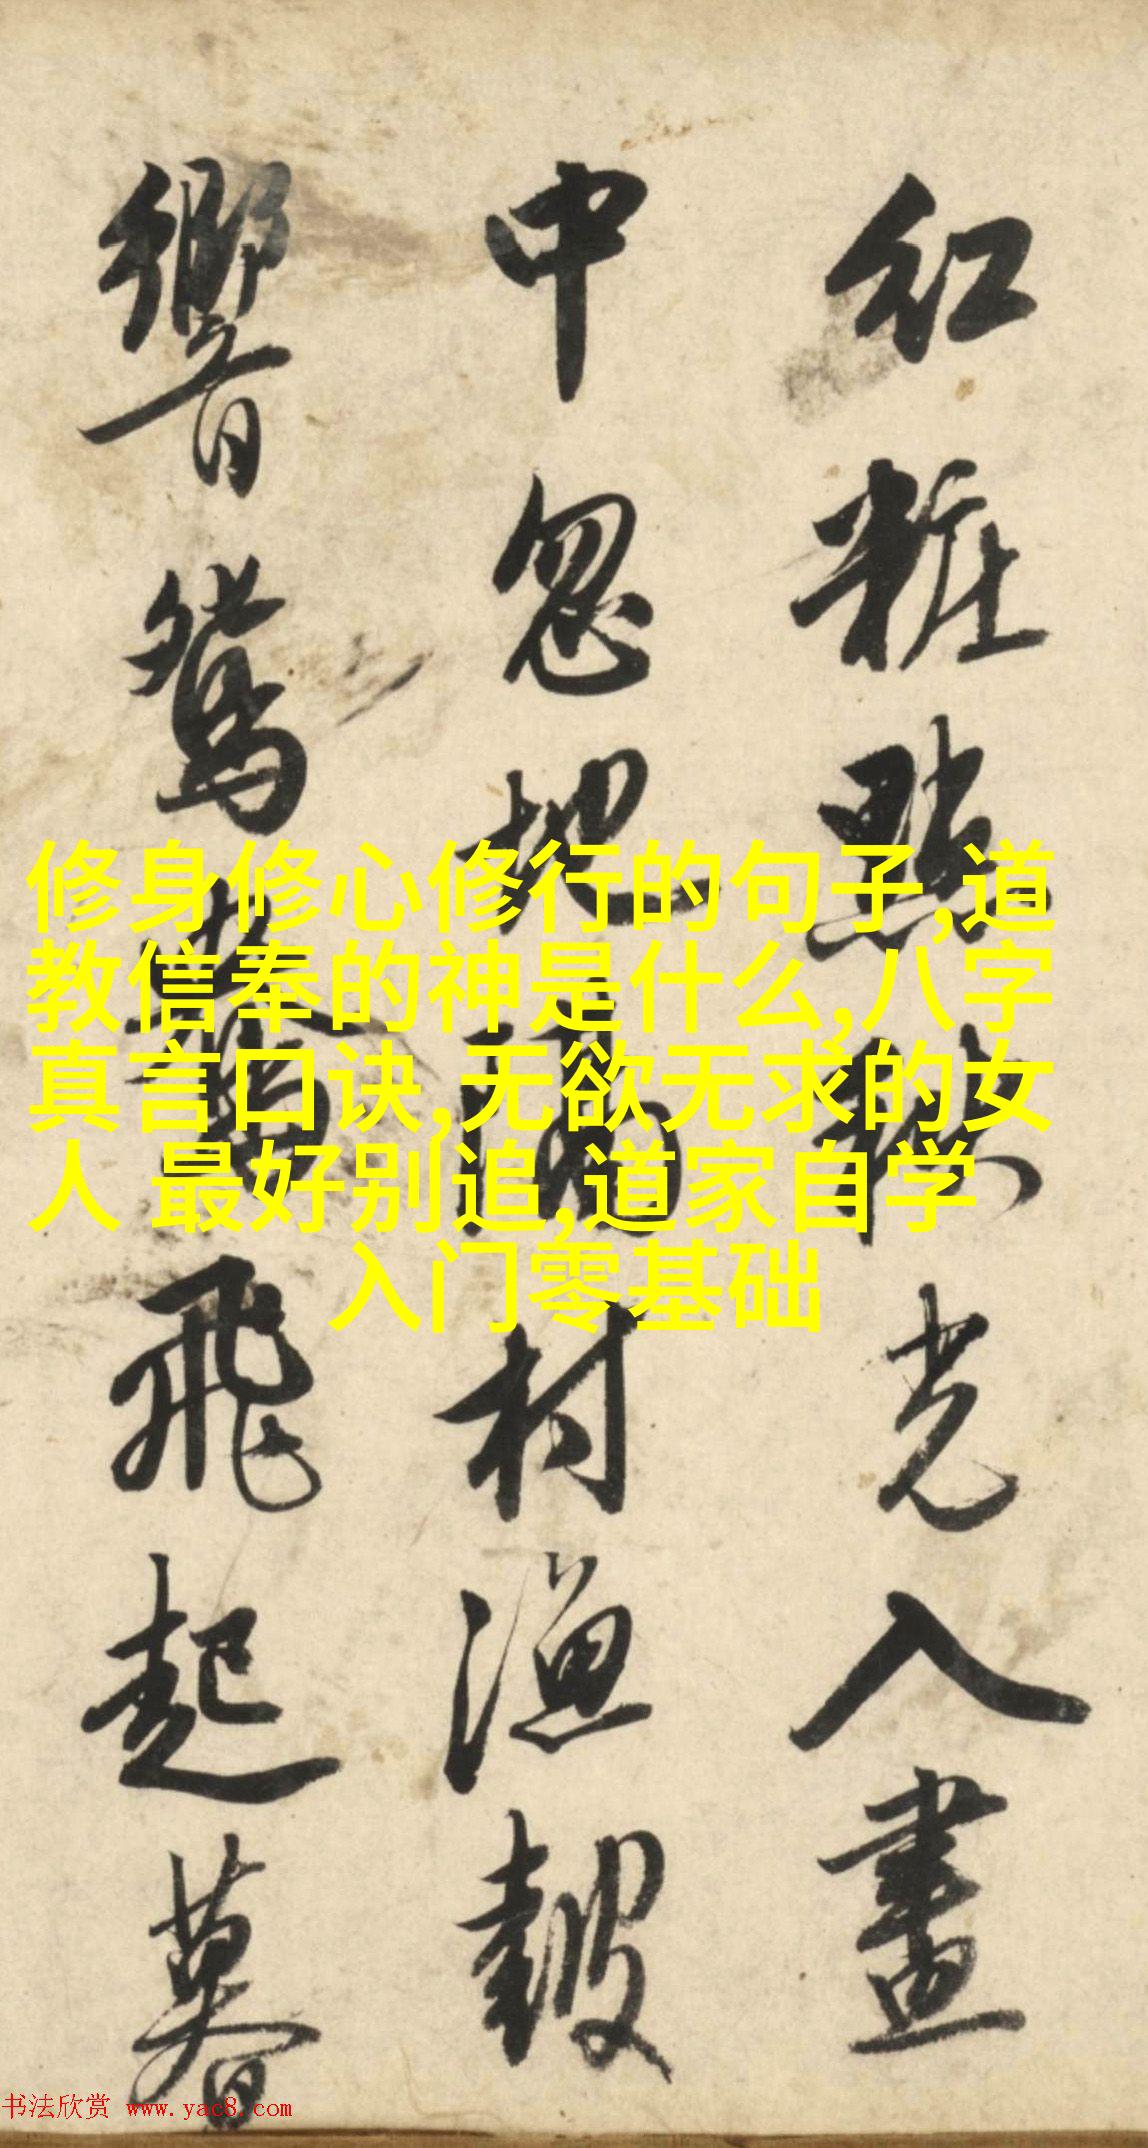 紅粧點秋光入畫
中忽地村漁鼓
響鴛鴦飛起暮
修身修心修行的句子,道
教信奉的神是什么,八字
真言口诀,无欲无求的女
人 最好别追,道家自学
入门零基础
书法欣赏 www.yac8.com